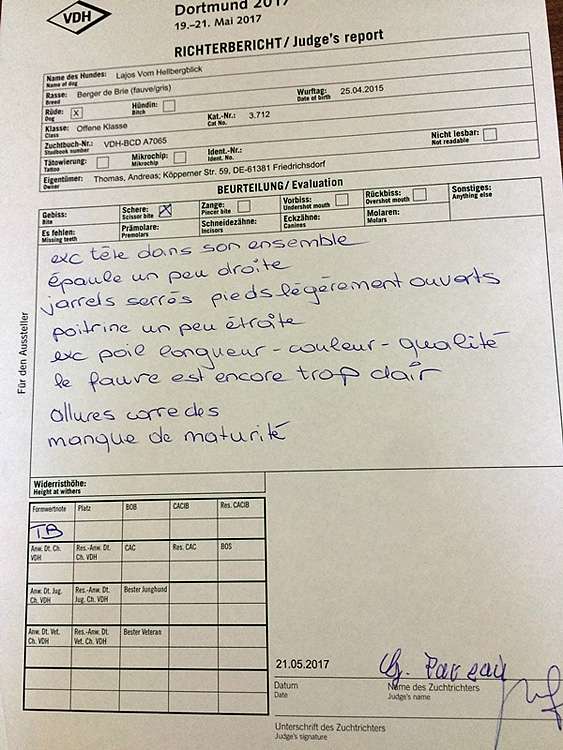 VDH
Dortmund 2017
19.–21. Mai 2017
RICHTERBERICHT / Judge's report
Name des Hundes: Lajos Vom Hellbergblick
Name of dog
Rasse: Berger de Brie (fauve/gris)
Breed
Wurftag: 25.04.2015
Date of birth
Rüde: X Hündin:
Dog Bitch
Klasse: Offene Klasse Kat.-Nr.: 3.712
Class Cat No.
Zuchtbuch-Nr.: VDH-BCD A7065
Studbook number
Nicht lesbar:
Not readable
Tätowierung: Mikrochip: Ident.-Nr.:
Tattoo Mikrochip Ident. No.
Eigentümer: Thomas, Andreas; Köpperner Str. 59, DE-61381 Friedrichsdorf
Owner
BEURTEILUNG / Evaluation
Gebiss: Schere: X Zange: Vorbiss: Rückbiss: Sonstiges:
Bite Scissor bite Pincer bite Undershot mouth Overshot mouth Anything else
Es fehlen: Prämolare: Schneidezähne: Eckzähne: Molaren:
Missing teeth Premolars Incisors Canines Molars
exc tête dans son ensemble
épaule un peu droite
jarrels serrés pieds légèrement ouverts
poitrine un peu étroite
exc poil longueur - couleur - qualité
le fauve est encore trop clair
allures correctes
manque de maturité
Für den Aussteller
Widerristhöhe:
Height at withers
Formwertnote Platz BOB CACIB Res. CACIB
TB
Anw. Dt. Ch. VDH Res.-Anw. Dt. Ch. VDH CAC Res. CAC BOS
Anw. Dt. Jug. Ch. VDH Res.-Anw. Dt. Jug. Ch. VDH Bester Junghund
Anw. Dt. Vet. Ch. VDH Res.-Anw. Dt. Vet. Ch. VDH Bester Veteran
21.05.2017
Datum
Date
Name des Zuchtrichters
Judge's name
Unterschrift des Zuchtrichters
Judge's signature